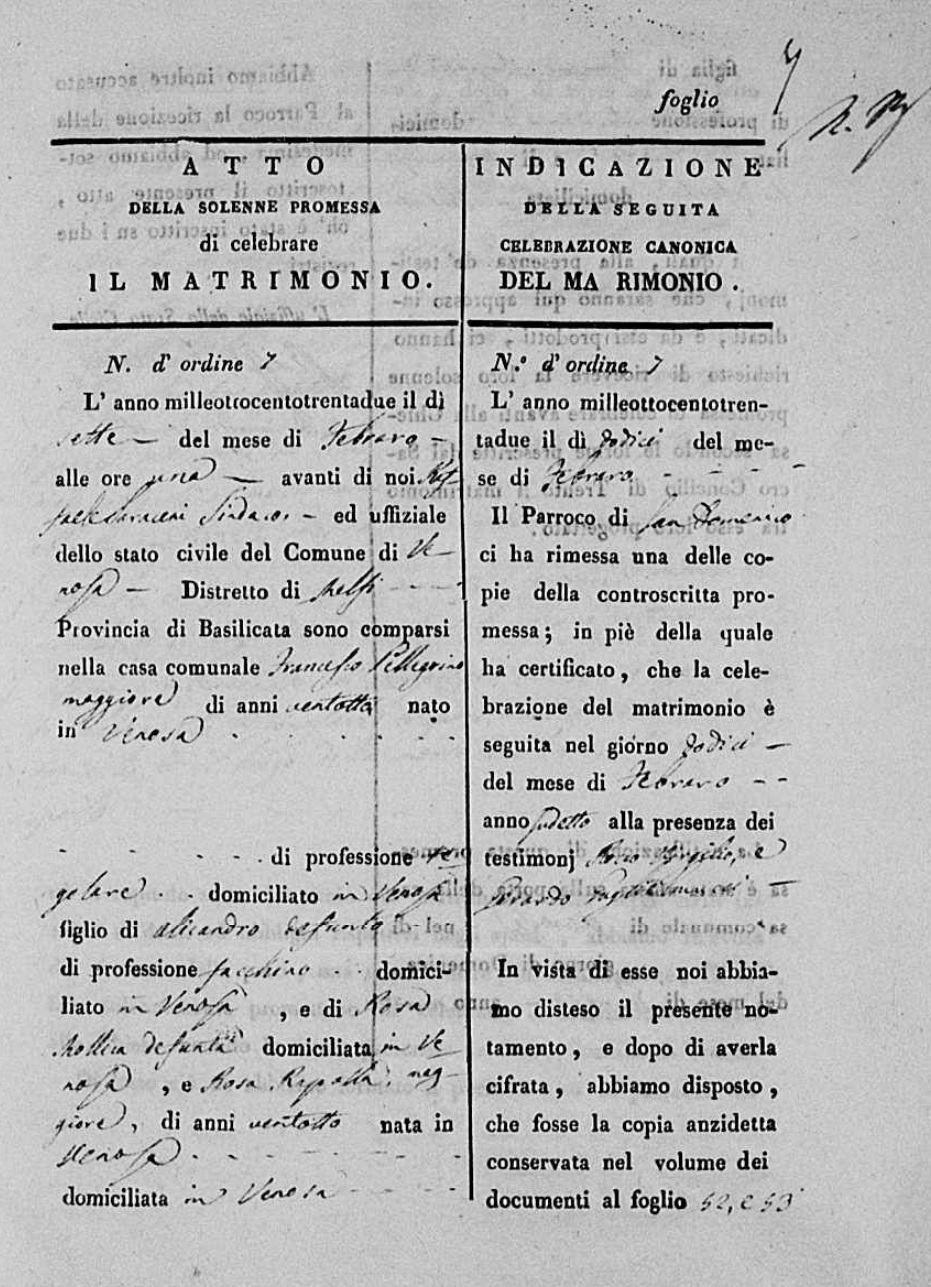 foglio 7
ATTO
DELLA SOLENNE PROMESSA
di celebrare
IL MATRIMONIO.
N. d' ordine 7
L' anno milleottocentotrentadue il dì
sette — del mese di Febraro —
alle ore una — avanti di noi Raf
faele Saraceni Sindaco, — ed uffiziale
dello stato civile del Comune di Ve
nosa — Distretto di Melfi
Provincia di Basilicata sono comparsi
nella casa comunale Francesco Pellegrino
maggiore di anni ventotto nato
in Venosa
di professione
domiciliato in Venosa
figlio di defunto
di professione facchino domici-
liato in Venosa, e di Rosa
defunta domiciliata in Ve
nosa, e Rosa mag
giore, di anni ventotto nata in
Venosa
domiciliata in Venosa
INDICAZIONE
DELLA SEGUITA
CELEBRAZIONE CANONICA
DEL MA RIMONIO.
N.º d' ordine 7
L' anno milleottocentotren-
tadue il dì dodici del me-
se di Febraro
Il Parroco di San Domenico
ci ha rimessa una delle co-
pie della controscritta pro-
messa; in piè della quale
ha certificato, che la cele-
brazione del matrimonio è
seguita nel giorno dodici —
del mese di Febraro - -
anno sudetto alla presenza dei
testimonj e
In vista di esse noi abbia-
mo disteso il presente no-
tamento, e dopo di averla
cifrata, abbiamo disposto,
che fosse la copia anzidetta
conservata nel volume dei
documenti al foglio 52, e 53